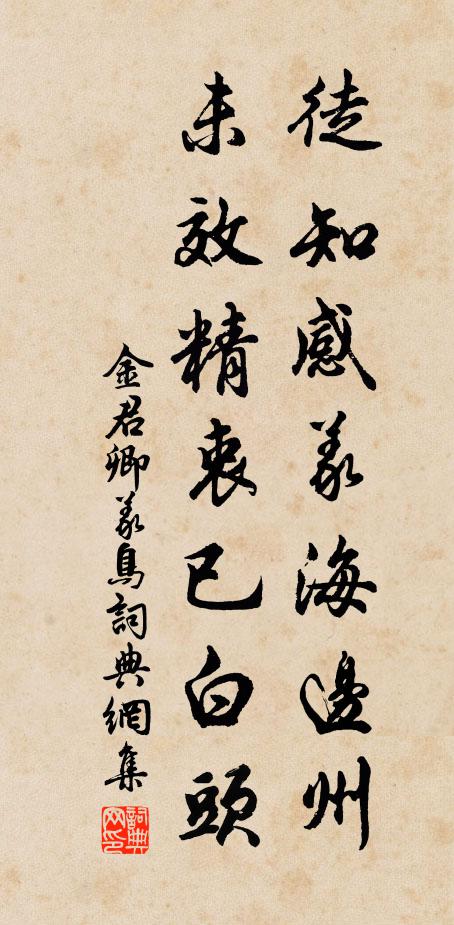 徒知感義海邊州
未效精衷已白頭
金君卿義鳥詞典網集
詞典网印